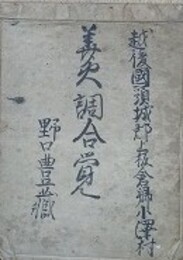 越後國頚城郡上板倉郷小澤村
美火調合覚
野口豊藏